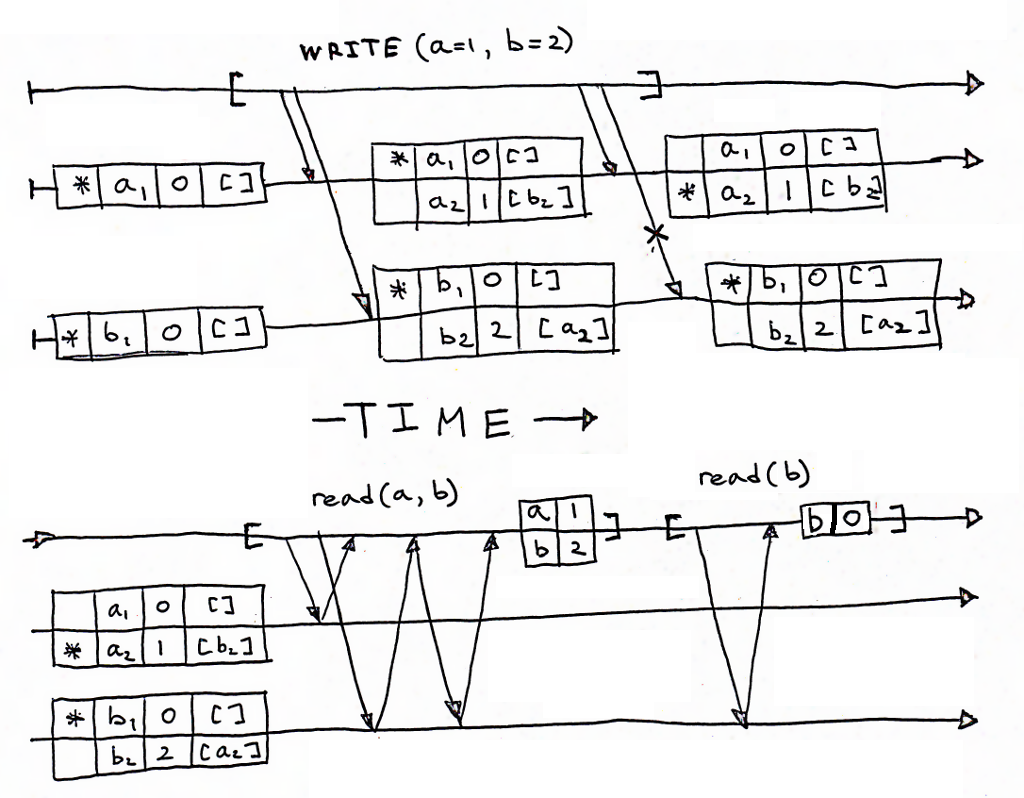 WRITE (a=1, b=2)
* a₁ 0 []
* a₁ 0 []
a₂ 1 [b₂]
a₁ 0 []
* a₂ 1 [b₂]
* b₁ 0 []
* b₁ 0 []
b₂ 2 [a₂]
* b₁ 0 []
b₂ 2 [a₂]
TIME
read(a, b)
read(b)
a 1
b 2
b 0
a₁ 0 []
* a₂ 1 [b₂]
* b₁ 0 []
b₂ 2 [a₂]